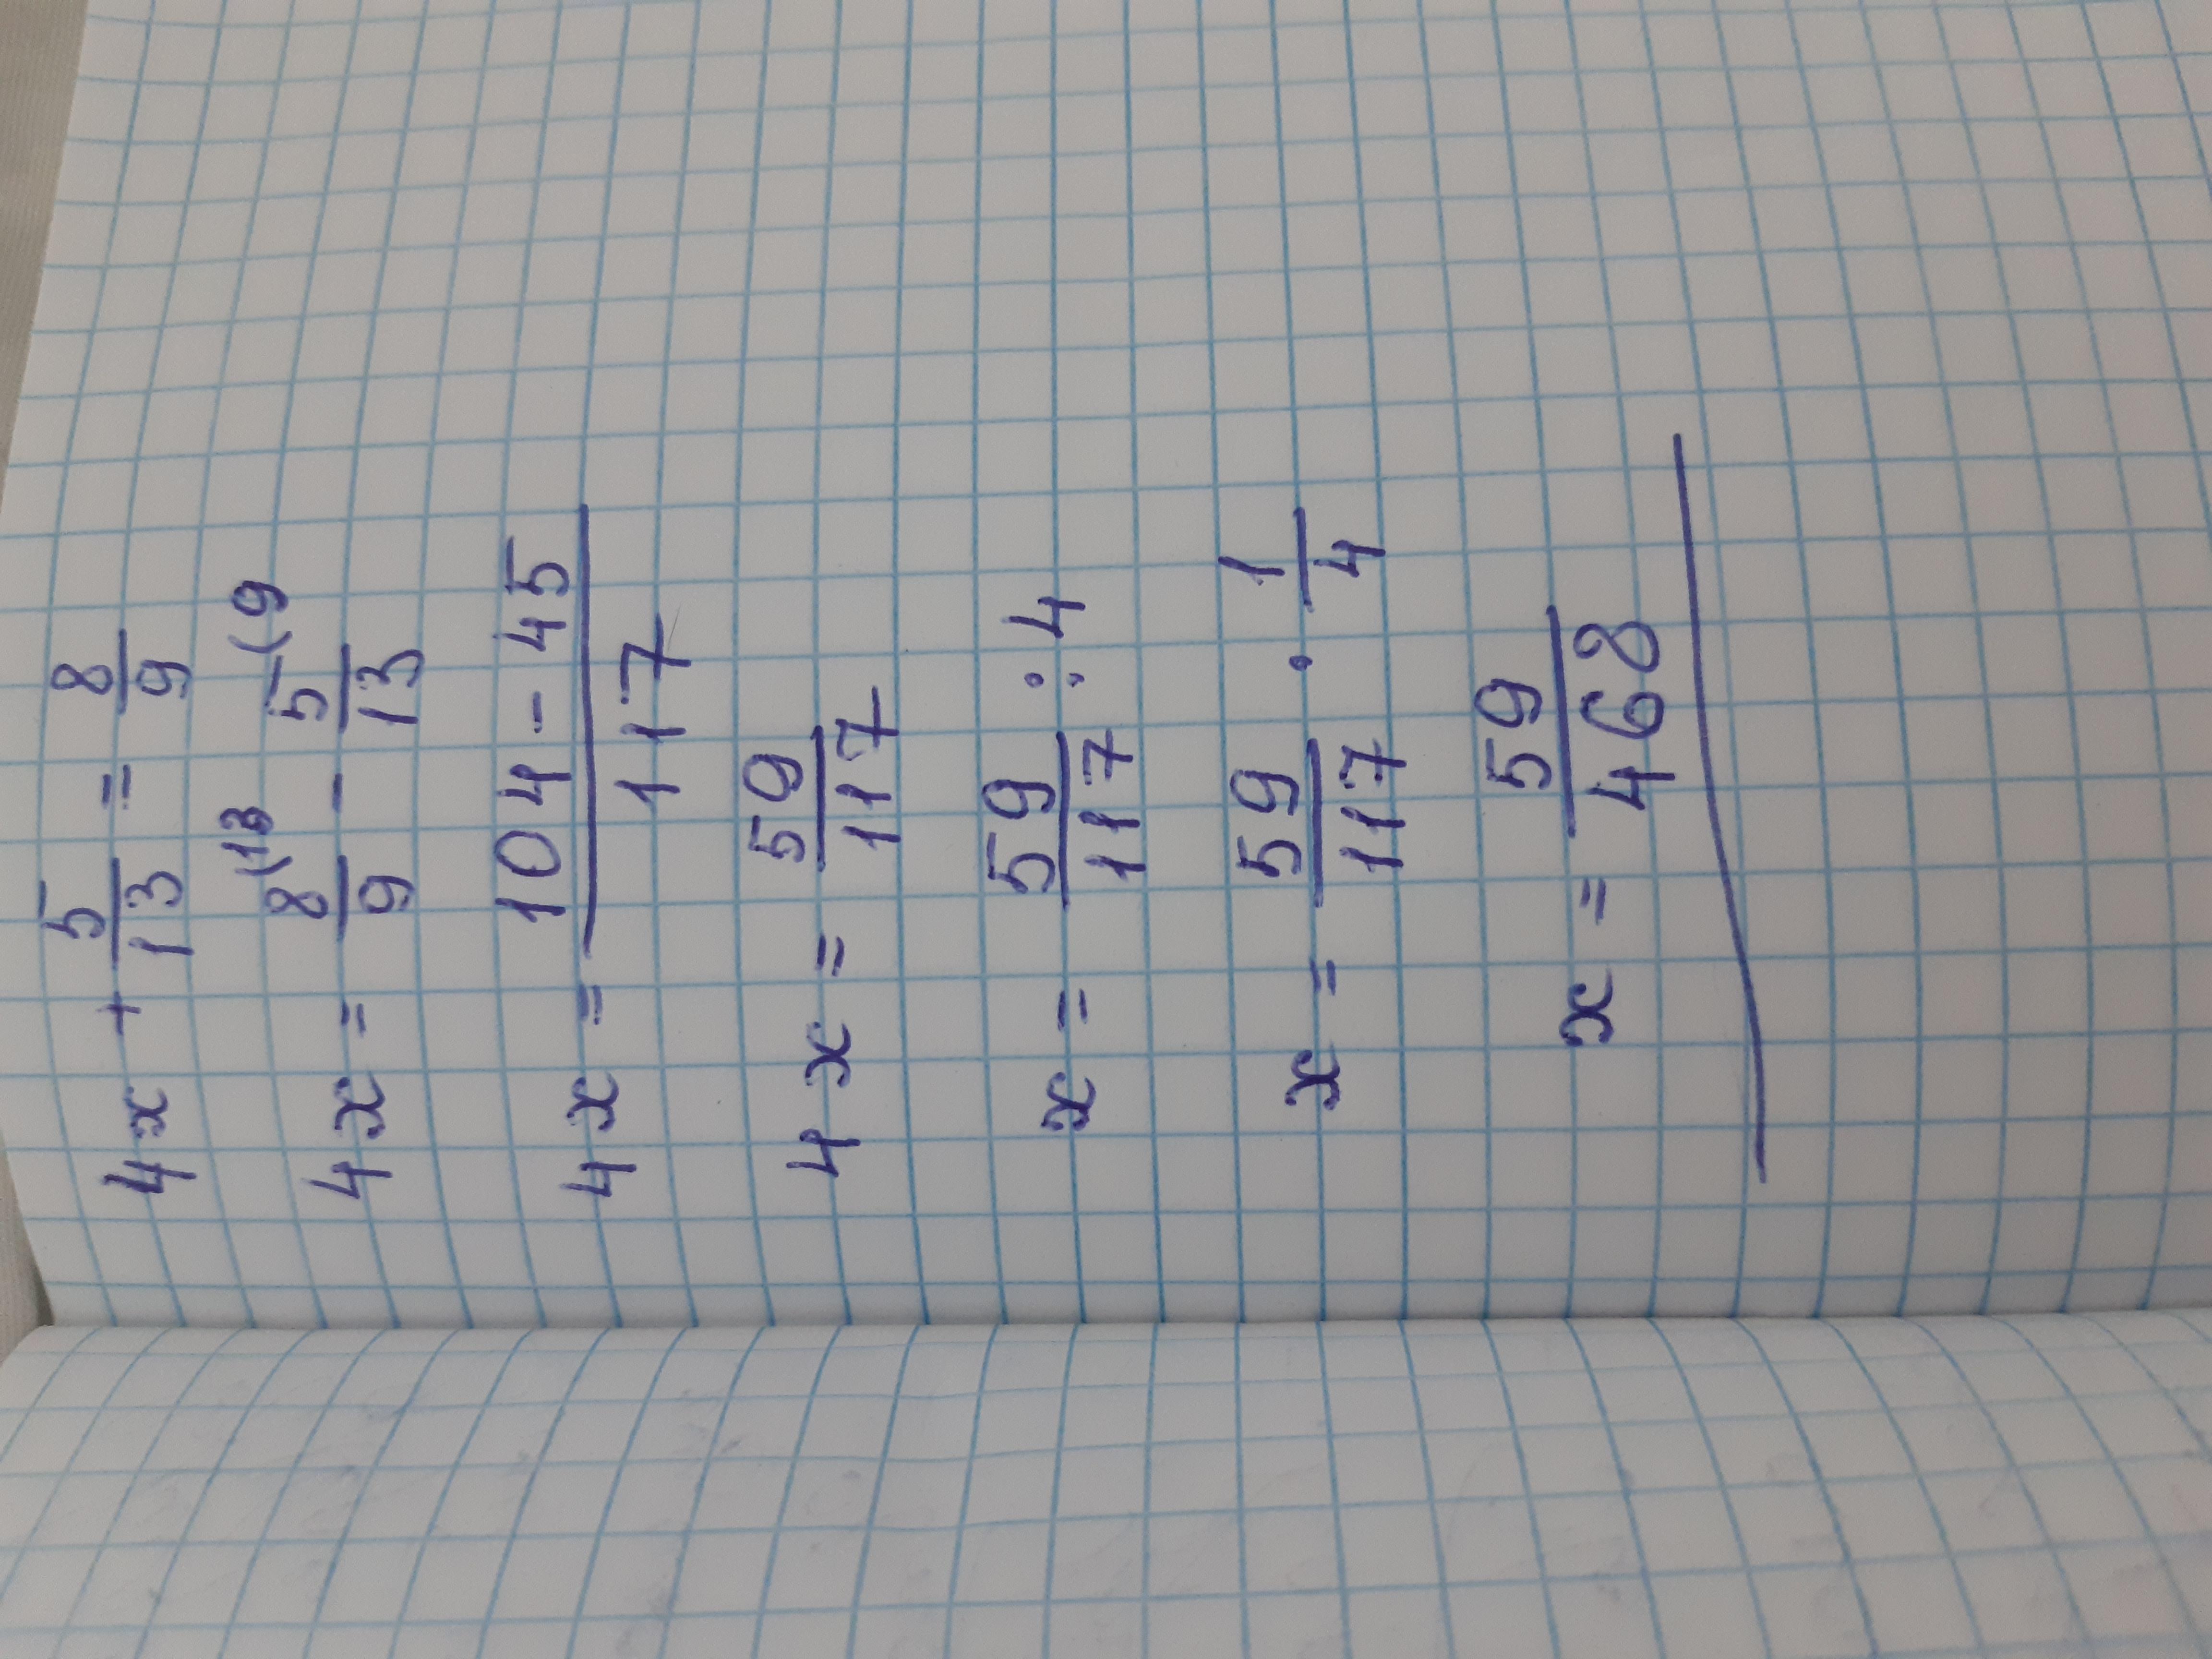 4x + 5/13 = 8/9
4x = 8/9 (13 - 5/13 (9
4x = (104 - 45)/117
4x = 59/117
x = 59/117 : 4
x = 59/117 · 1/4
x = 59/468